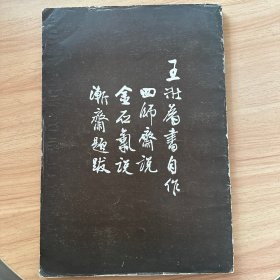 王壮为书自作
四师斋说
金石气说
渐斋题跋